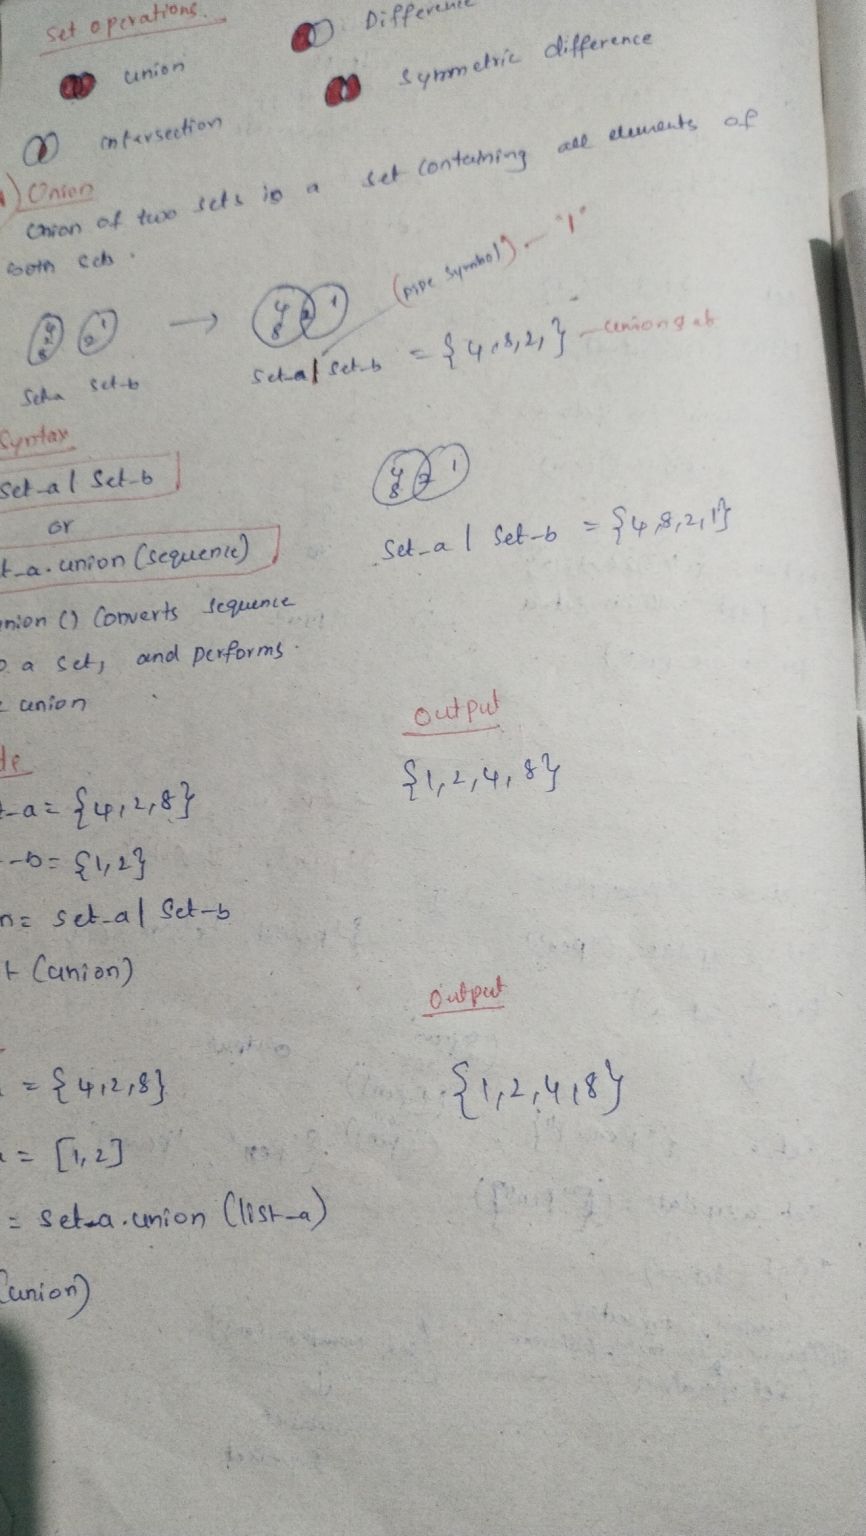 Set operations.
Difference
union
Symmetric difference
intersection
) Union
Union of two sets is a set containing all elements of
both sets.
(pipe symbol) - "|"
4 2 8
2 1
4 8 2 1
Set-a Set-b
Set-a | Set-b = {4,8,2,} - union of ab
Syntax
Set-a | Set-b
4 8 2 1
or
Set-a | Set-b = {4,8,2,1}
t-a.union (sequence)
nion () Converts sequence
o a set, and performs.
e union
Output
de
{1,2,4,8}
t-a= {4,2,8}
-b= {1,2}
n= set-a | Set-b
t (union)
Output
= {4,2,8}
{1,2,4,8}
a = [1,2]
= set-a.union (list-a)
(union)